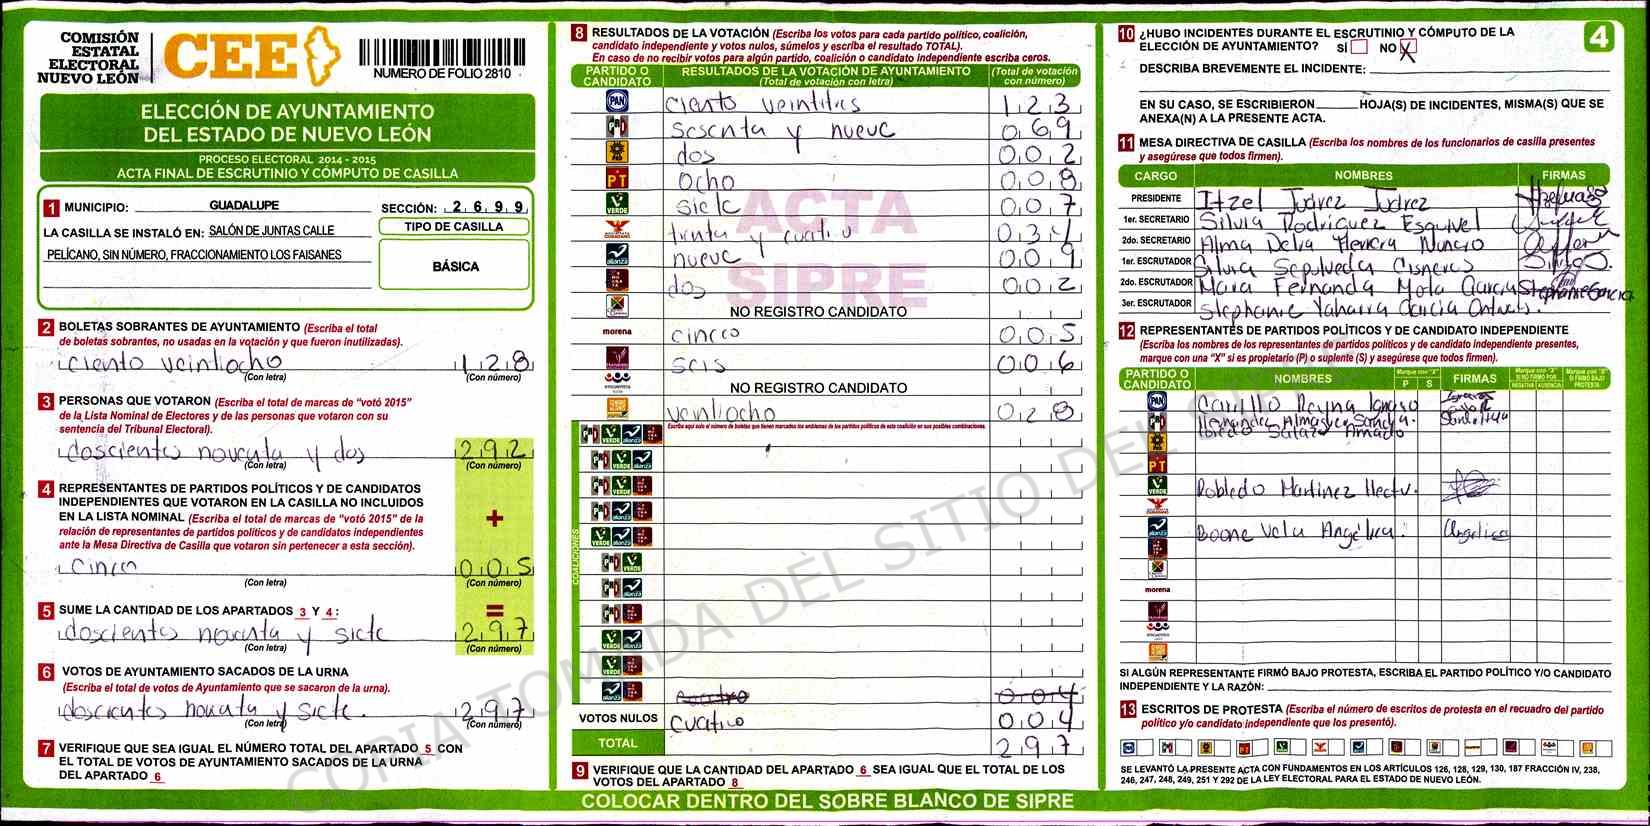 COMISIÓN
ESTATAL
ELECTORAL
NUEVO LEÓN
CEE
NUMERO DE FOLIO 2810
ELECCIÓN DE AYUNTAMIENTO
DEL ESTADO DE NUEVO LEÓN
PROCESO ELECTORAL 2014 - 2015
ACTA FINAL DE ESCRUTINIO Y CÓMPUTO DE CASILLA
1 MUNICIPIO: GUADALUPE SECCIÓN: 2 6 9 9
LA CASILLA SE INSTALÓ EN: SALÓN DE JUNTAS CALLE
PELÍCANO, SIN NÚMERO, FRACCIONAMIENTO LOS FAISANES
TIPO DE CASILLA
BÁSICA
2 BOLETAS SOBRANTES DE AYUNTAMIENTO (Escriba el total
de boletas sobrantes, no usadas en la votación y que fueron inutilizadas).
ciento veintiocho 1 2 8
(Con letra) (Con número)
3 PERSONAS QUE VOTARON (Escriba el total de marcas de “votó 2015”
de la Lista Nominal de Electores y de las personas que votaron con su
sentencia del Tribunal Electoral).
doscientos noventa y dos 2 9 2
(Con letra) (Con número)
4 REPRESENTANTES DE PARTIDOS POLÍTICOS Y DE CANDIDATOS
INDEPENDIENTES QUE VOTARON EN LA CASILLA NO INCLUIDOS
EN LA LISTA NOMINAL (Escriba el total de marcas de “votó 2015” de la
relación de representantes de partidos políticos y de candidatos independientes
ante la Mesa Directiva de Casilla que votaron sin pertenecer a esta sección).
+
cinco 0 0 5
(Con letra) (Con número)
=
5 SUME LA CANTIDAD DE LOS APARTADOS 3 Y 4:
doscientos noventa y siete 2 9 7
(Con letra) (Con número)
6 VOTOS DE AYUNTAMIENTO SACADOS DE LA URNA
(Escriba el total de votos de Ayuntamiento que se sacaron de la urna).
doscientos noventa y siete. 2 9 7
(Con letra) (Con número)
7 VERIFIQUE QUE SEA IGUAL EL NÚMERO TOTAL DEL APARTADO 5 CON
EL TOTAL DE VOTOS DE AYUNTAMIENTO SACADOS DE LA URNA
DEL APARTADO 6
8 RESULTADOS DE LA VOTACIÓN (Escriba los votos para cada partido político, coalición,
candidato independiente y votos nulos, súmelos y escriba el resultado TOTAL).
En caso de no recibir votos para algún partido, coalición o candidato independiente escriba ceros.
PARTIDO O CANDIDATO
RESULTADOS DE LA VOTACIÓN DE AYUNTAMIENTO
(Total de votación con letra)
(Total de votación con número)
PAN ciento veintitres 1 2 3
PRI sesenta y nueve 0 6 9
PRD dos 0 0 2
PT ocho 0 0 8
VERDE siete 0 0 7
treinta y cuatro 0 3 4
alianza nueve 0 0 9
dos 0 0 2
NO REGISTRO CANDIDATO
morena cinco 0 0 5
seis 0 0 6
NO REGISTRO CANDIDATO
veintiocho 0 2 8
Escriba aquí solo el número de boletas que tienen marcados los emblemas de los partidos políticos de esta coalición en sus posibles combinaciones.
COALICIONES
cuatro 0 0 4
VOTOS NULOS cuatro 0 0 4
TOTAL 2 9 7
9 VERIFIQUE QUE LA CANTIDAD DEL APARTADO 6 SEA IGUAL QUE EL TOTAL DE LOS
VOTOS DEL APARTADO 8
ACTA
SIPRE
COPIA TOMADA DEL SITIO DEL SIPRE
10 ¿HUBO INCIDENTES DURANTE EL ESCRUTINIO Y CÓMPUTO DE LA
ELECCIÓN DE AYUNTAMIENTO? SÍ NO X
4
DESCRIBA BREVEMENTE EL INCIDENTE:
EN SU CASO, SE ESCRIBIERON HOJA(S) DE INCIDENTES, MISMA(S) QUE SE
ANEXA(N) A LA PRESENTE ACTA.
11 MESA DIRECTIVA DE CASILLA (Escriba los nombres de los funcionarios de casilla presentes
y asegúrese que todos firmen).
CARGO NOMBRES FIRMAS
PRESIDENTE Itzel Juárez Juárez
1er. SECRETARIO Silvia Rodriguez Esquivel
2do. SECRETARIO Alma Delia Herrera Nuncio
1er. ESCRUTADOR Silvia Sepulveda Cisneros
2do. ESCRUTADOR Mara Fernanda Mota Garcia Stephanie Garcia
3er. ESCRUTADOR Stephanie Yahaira Garcia
12 REPRESENTANTES DE PARTIDOS POLÍTICOS Y DE CANDIDATO INDEPENDIENTE
(Escriba los nombres de los representantes de partidos políticos y de candidato independiente presentes,
marque con una “X” si es propietario (P) o suplente (S) y asegúrese que todos firmen).
PARTIDO O CANDIDATO
NOMBRES
Marque con "X"
P S
FIRMAS
Marque con "X" SI NO FIRMÓ POR
NEGATIVA AUSENCIA
Marque con "X" SI FIRMÓ BAJO PROTESTA
PAN Carrillo Reyna Ignacio
Hernández Almaguer Sandra.
Salazar Amado
PT
VERDE Robledo Martinez Hector.
Boone Vela Angélica. Angélica
morena
SI ALGÚN REPRESENTANTE FIRMÓ BAJO PROTESTA, ESCRIBA EL PARTIDO POLÍTICO Y/O CANDIDATO
INDEPENDIENTE Y LA RAZÓN:
13 ESCRITOS DE PROTESTA (Escriba el número de escritos de protesta en el recuadro del partido
político y/o candidato independiente que los presentó).
SE LEVANTÓ LA PRESENTE ACTA CON FUNDAMENTOS EN LOS ARTÍCULOS 126, 128, 129, 130, 187 FRACCIÓN IV, 238,
246, 247, 248, 249, 251 Y 292 DE LA LEY ELECTORAL PARA EL ESTADO DE NUEVO LEÓN.
COLOCAR DENTRO DEL SOBRE BLANCO DE SIPRE